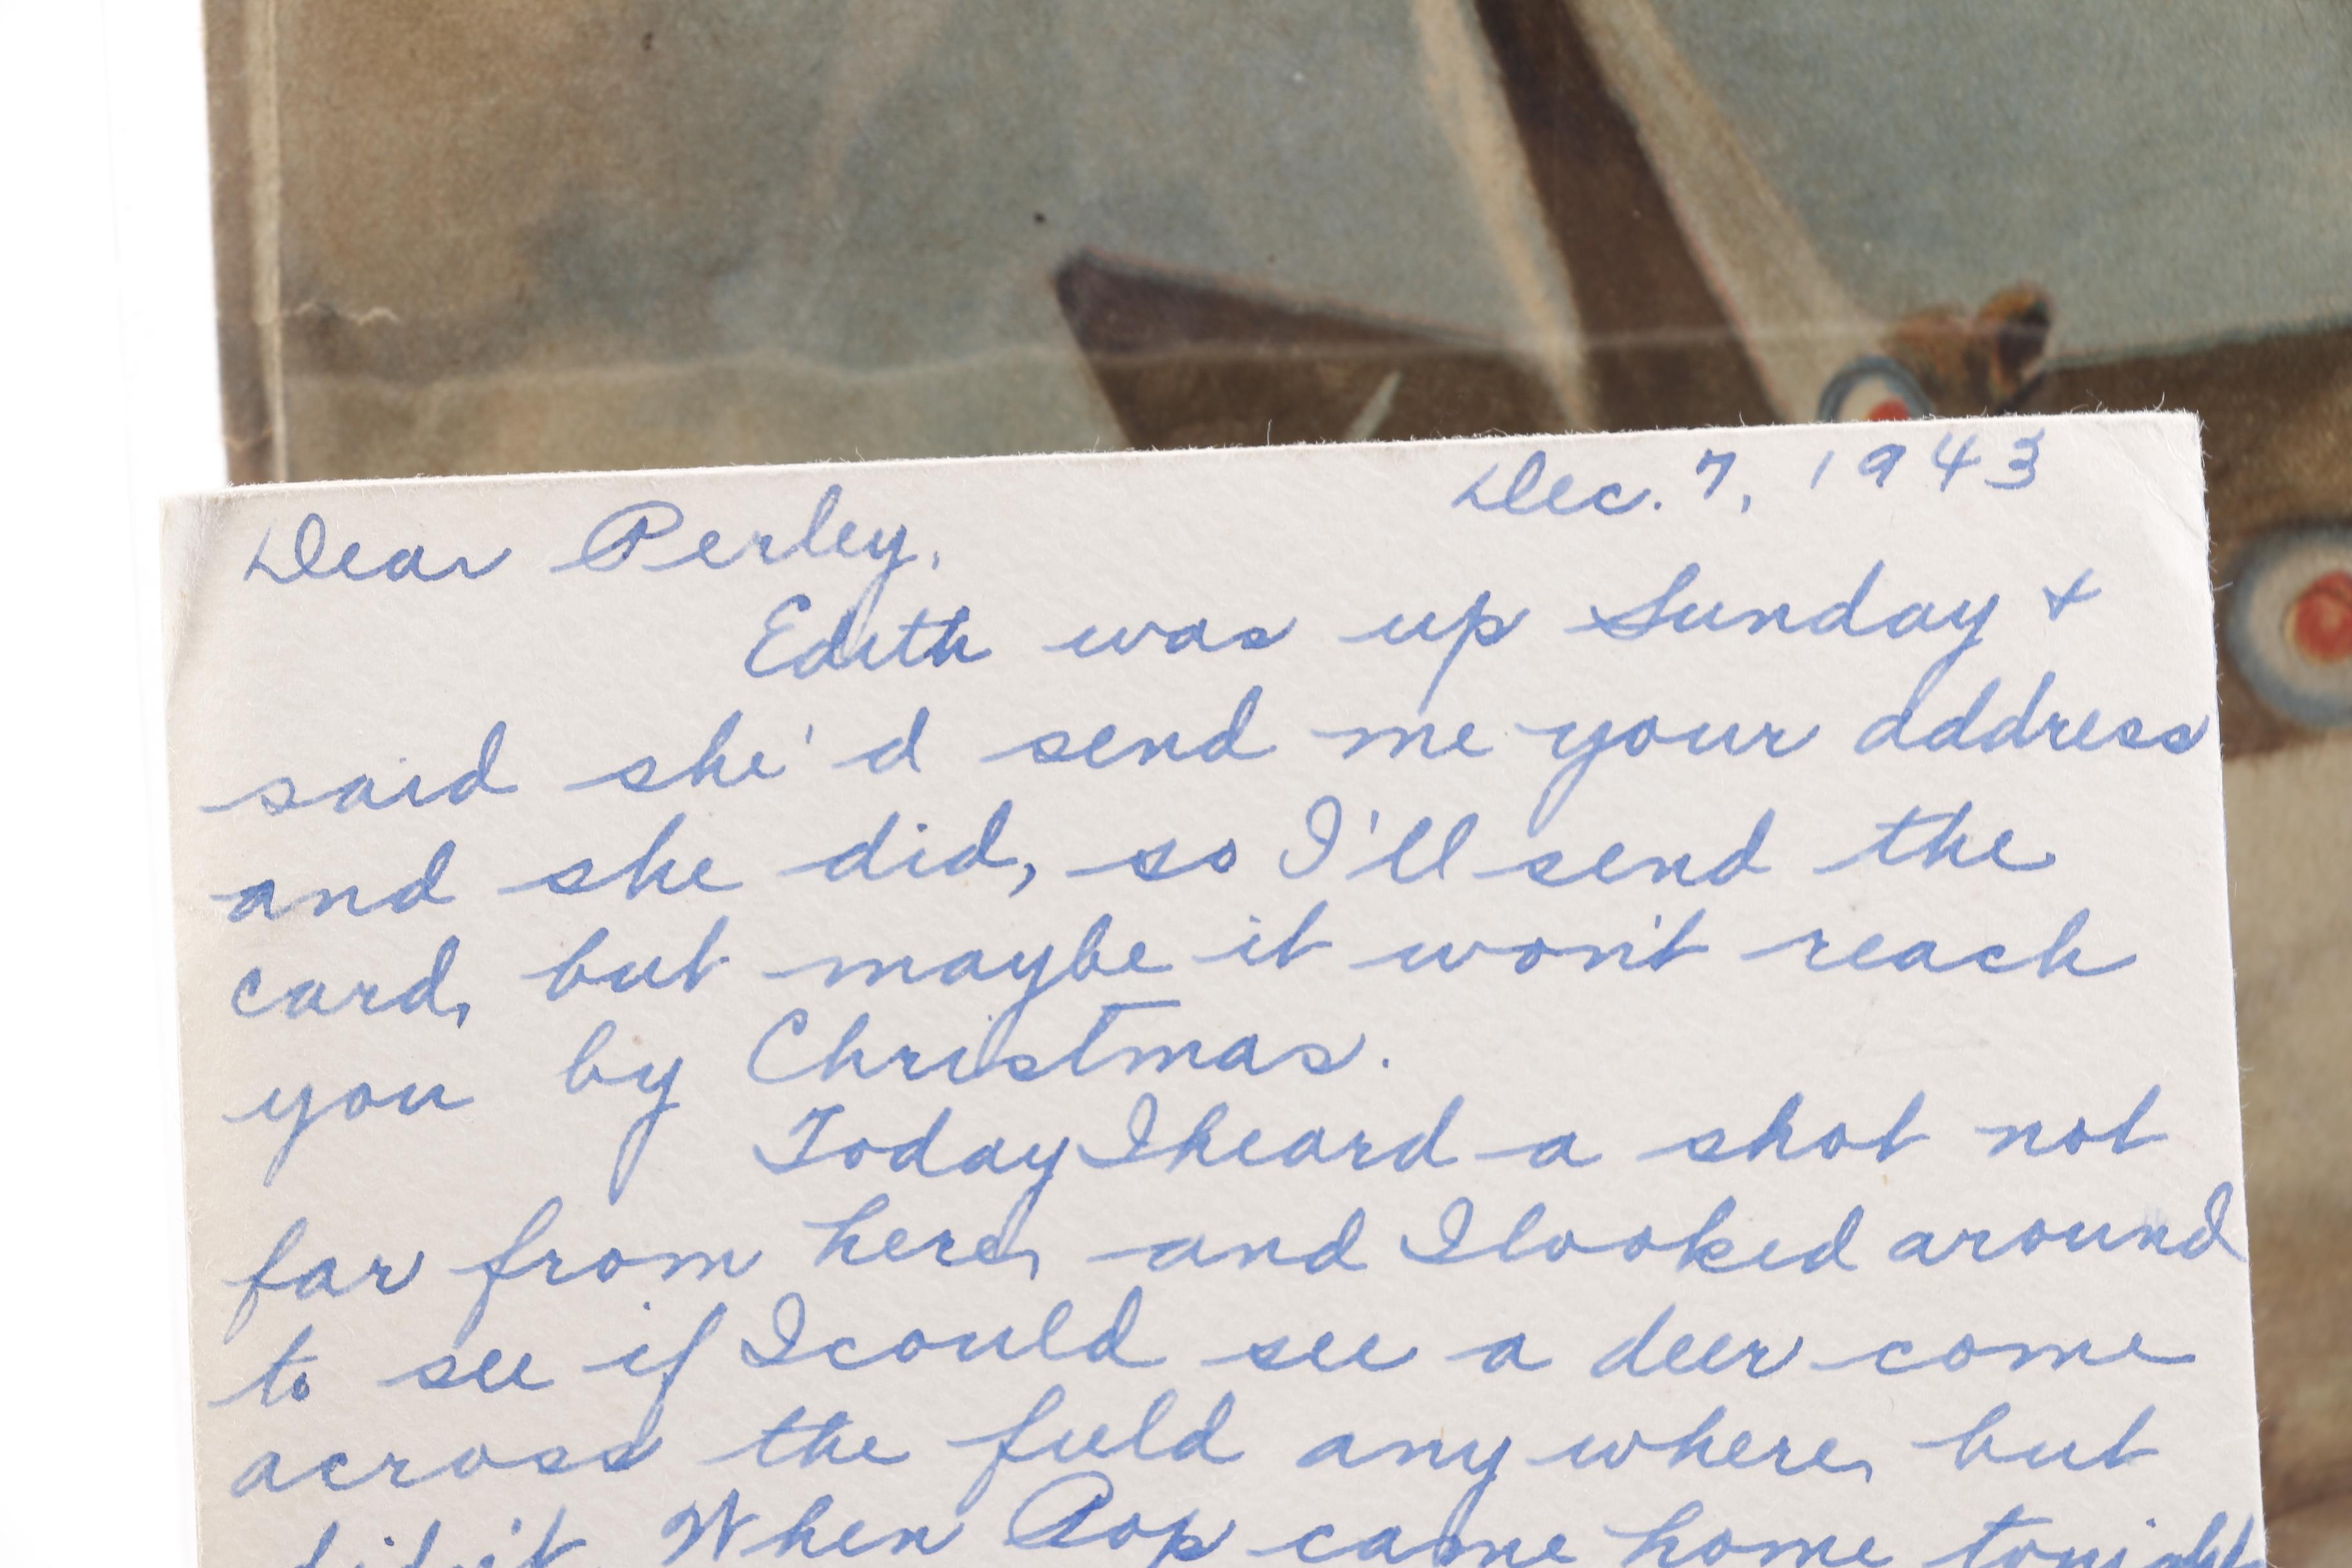 Dec. 7, 1943
Dear Perley,
Edith was up Sunday +
said she'd send me your address
and she did, so I'll send the
card, but maybe it won't reach
you by Christmas.
Today I heard a shot not
far from here, and I looked around
to see if I could see a deer come
across the field anywhere, but
didn't. When Pop came home tonight